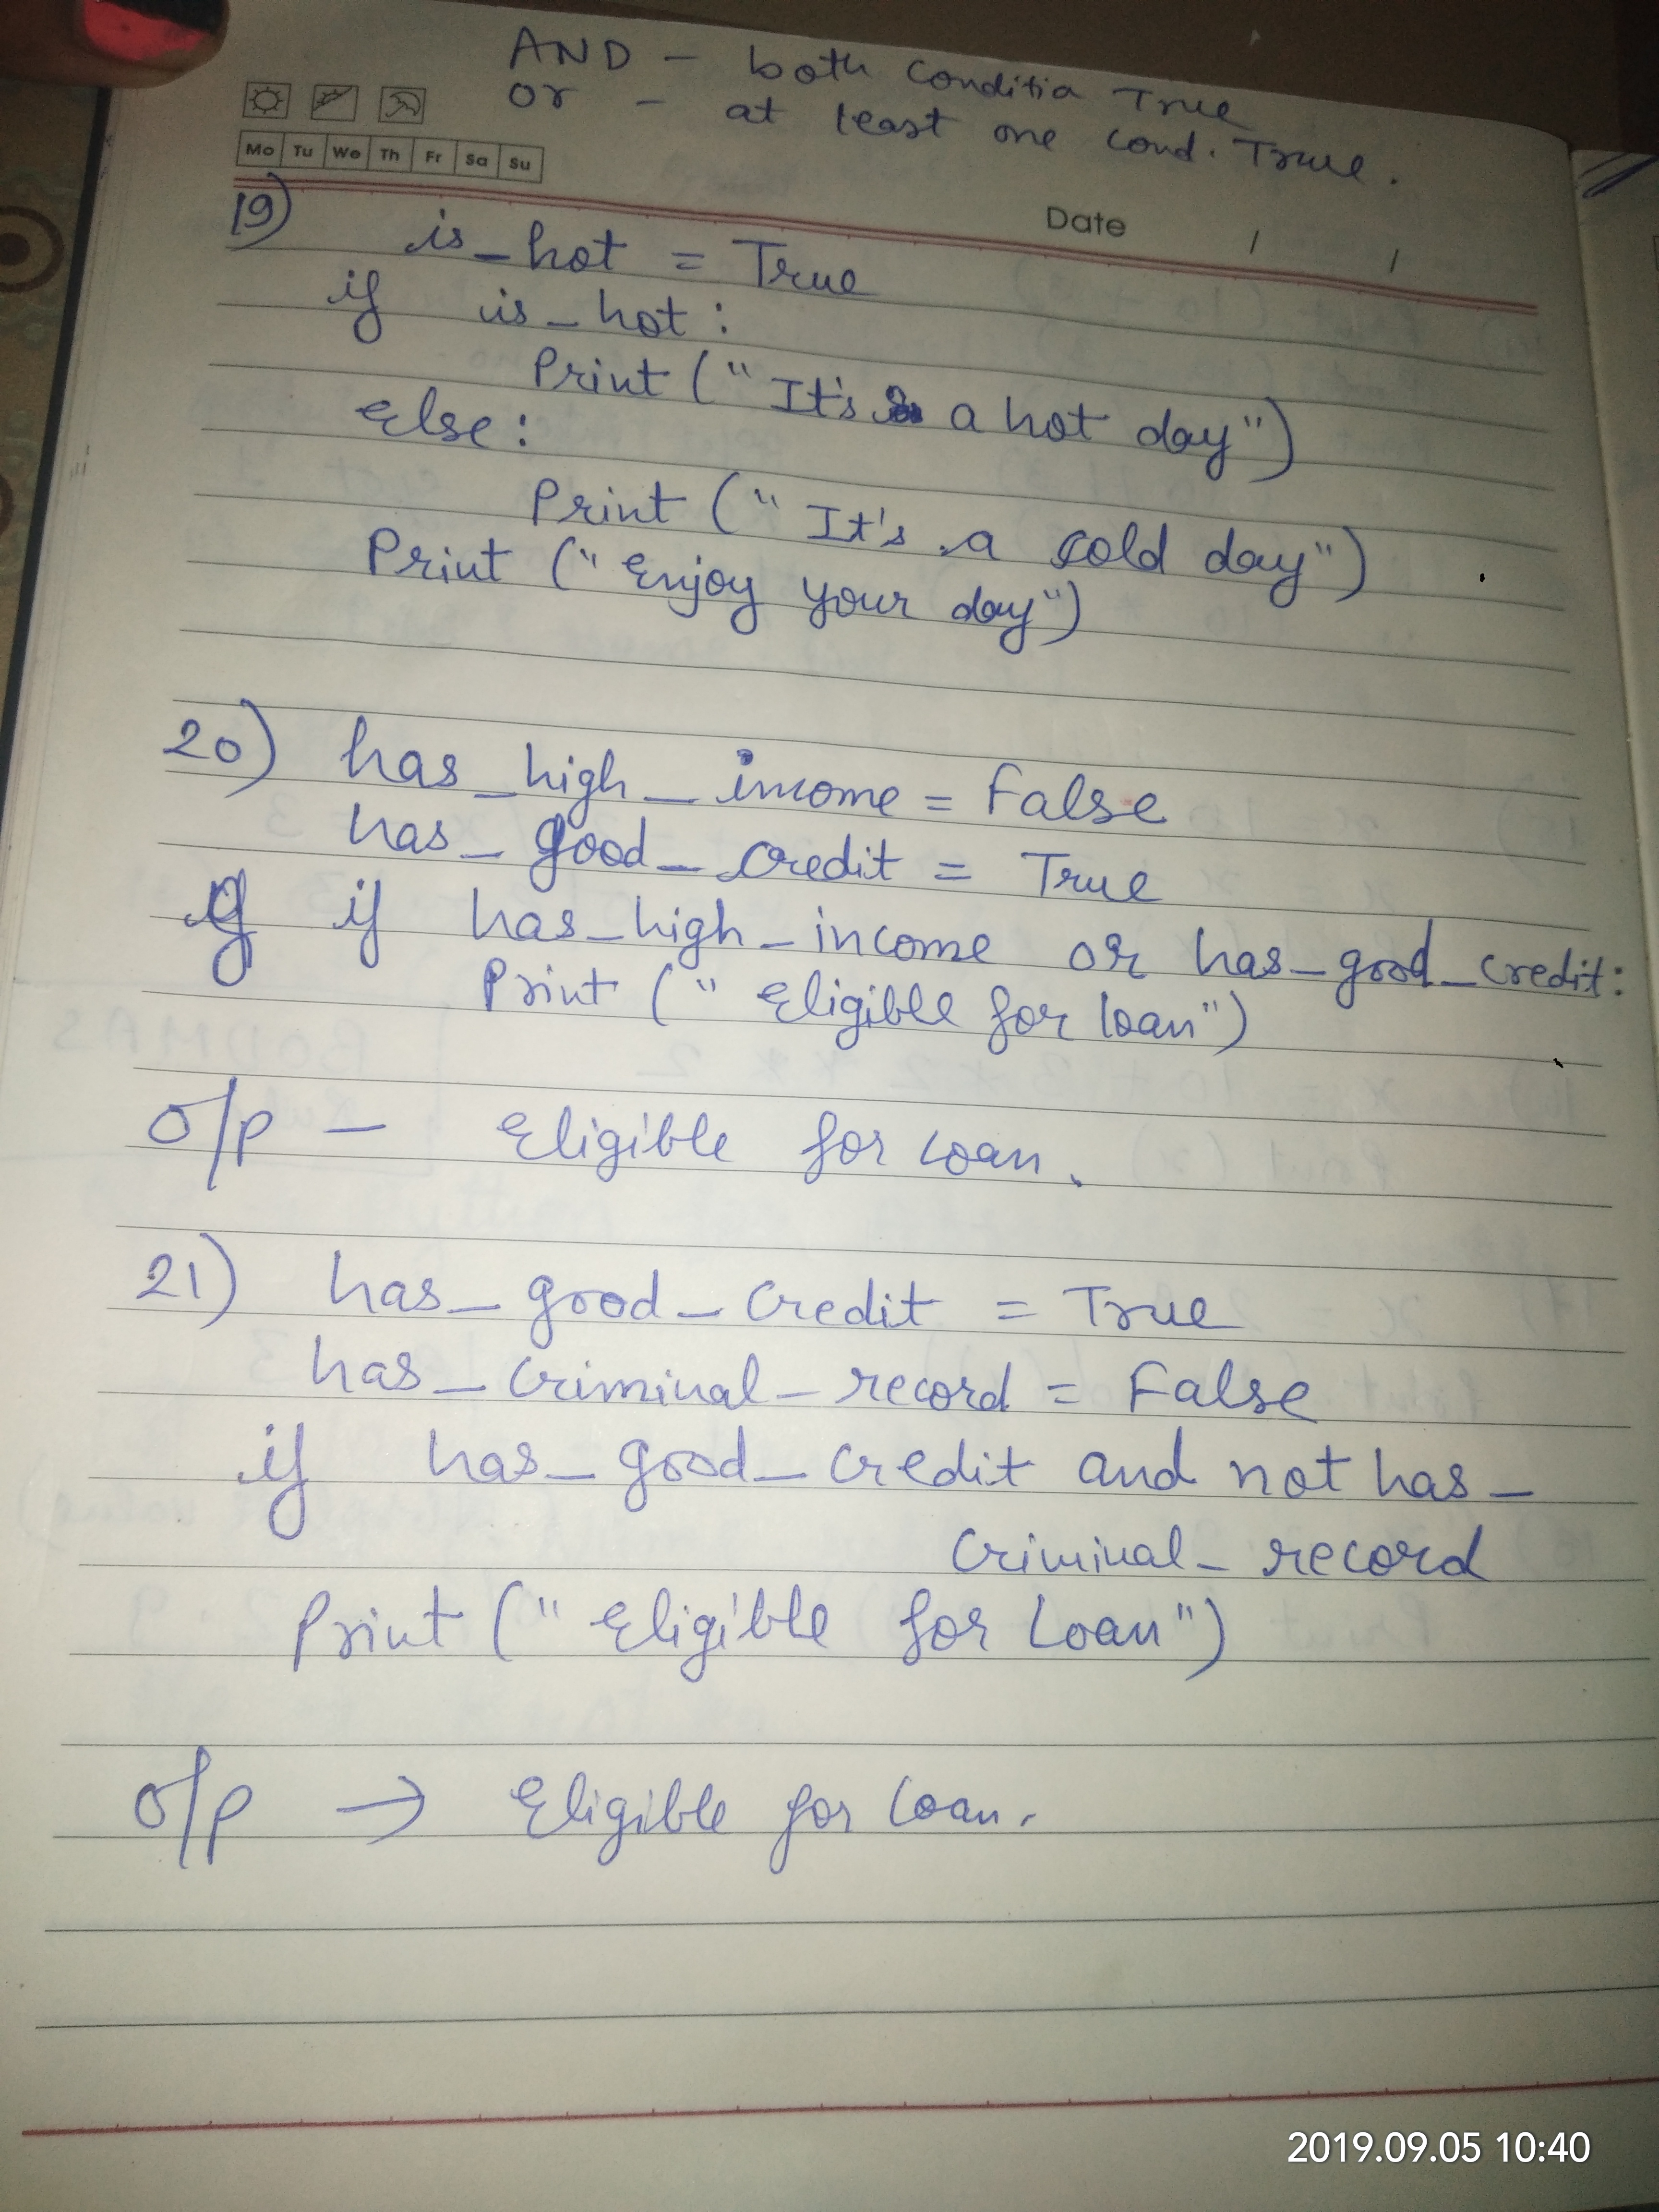 AND - both Conditia True
or - at least one cond. True.
Mo Tu We Th Fr Sa Su
Date / /
19) is_hot = True
if is_hot:
Print ("It's a hot day")
Else:
Print ("It's a cold day")
Print ("Enjoy your day")
20) has_high_income = False
has_good_credit = True
if has_high_income or has_good_credit:
Print ("Eligible for loan")
o/p - Eligible for Loan.
21) has_good_credit = True
has_criminal_record = False
if has_good_credit and not has_
criminal_record
Print ("Eligible for Loan")
o/p → Eligible for Loan.
2019.09.05 10:40